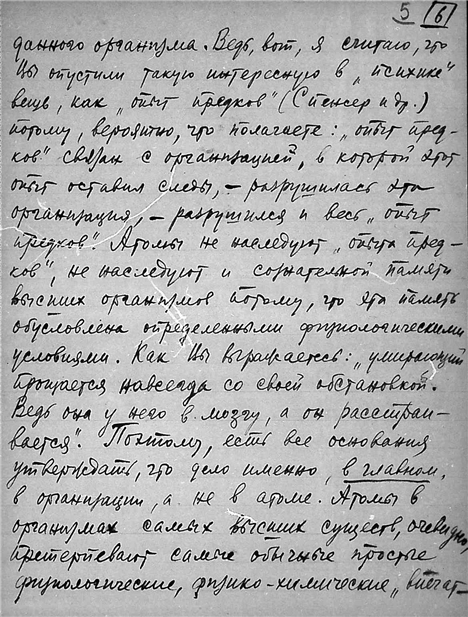 5 6
данного организма. Ведь, вот, я считаю, что
Вы опустили такую интересную в „психике"
вещь, как „опыт предков" (Спенсер и др.)
потому, вероятно, что полагаете: „опыт пред-
ков" связан с организацией, в которой этот
опыт оставил следы, – разрушилась эта
организация, – разрушился и весь „опыт
предков". Атомы не наследуют „опыта пред-
ков", не наследуют и сознательной памяти
высших организмов потому, что эта память
обусловлена определенными физиологическими
условиями. Как Вы выражаетесь: „умирающий
прощается навсегда со своей обстановкой.
Ведь она у него в мозгу, а он расстраи-
вается". Поэтому, есть все основания
утверждать, что дело именно, в главном,
в организации, а не в атоме. Атомы в
организмах самых высших существ, очевидно,
претерпевают самые обычные простые
физиологические, физико-химические „впечат-